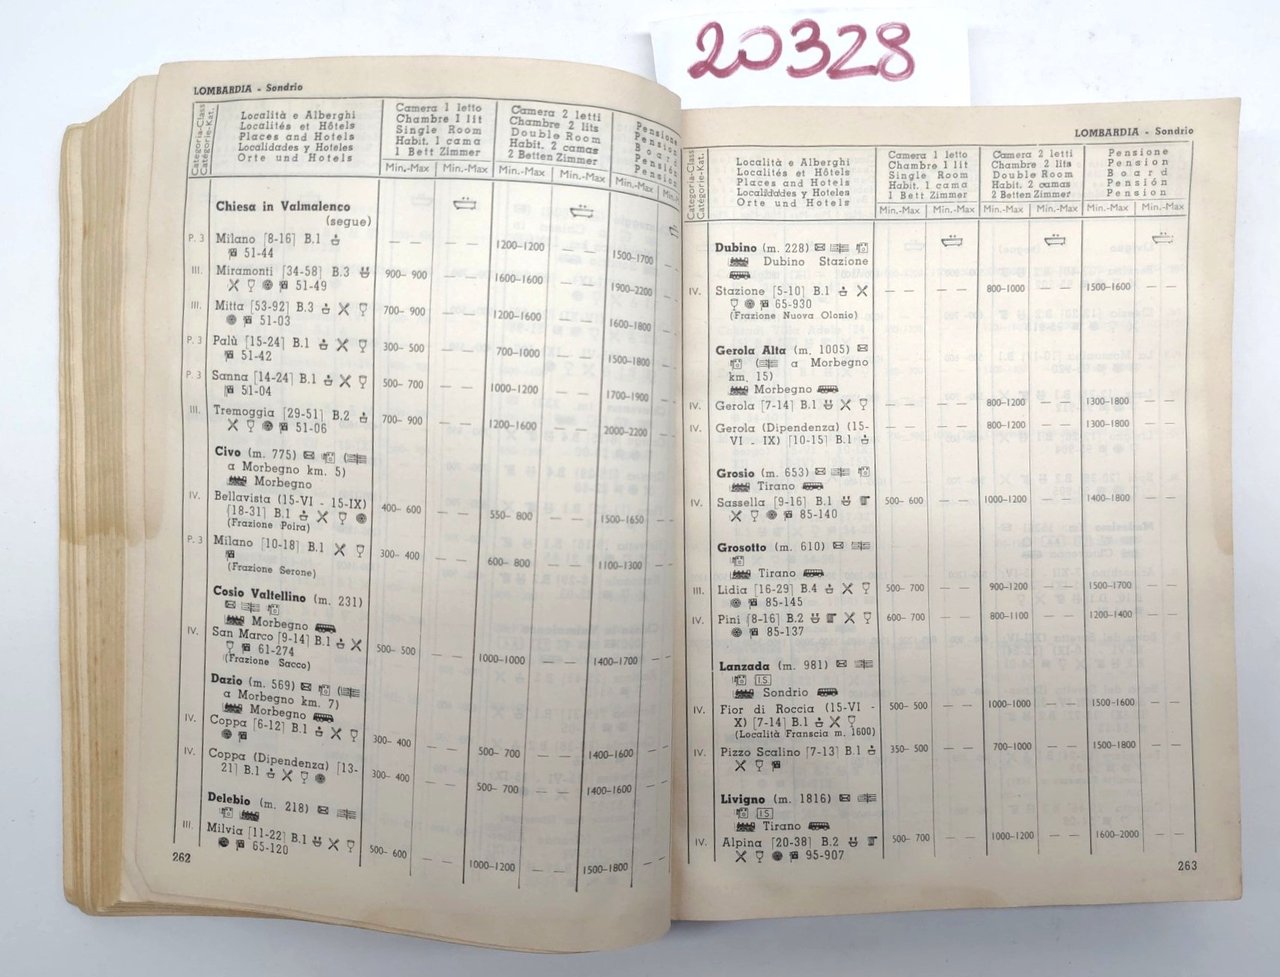 20328
LOMBARDIA - Sondrio
Categoria-Class
Catégorie-Kat.
Località e Alberghi
Localités et Hôtels
Places and Hotels
Localidades y Hoteles
Orte und Hotels
Camera 1 letto
Chambre 1 lit
Single Room
Habit. 1 cama
1 Bett Zimmer
Camera 2 letti
Chambre 2 lits
Double Room
Habit. 2 camas
2 Betten Zimmer
Pensione
Pension
Board
Pensión
Pension
Min.-Max Min.-Max Min.-Max Min.-Max Min.-Max
Chiesa in Valmalenco
(segue)
P. 3 Milano [8-16] B.1 — — — — 1200-1200 — — 1500-1700 — —
51-44
III. Miramonti [34-58] B.3 900- 900 — — 1600-1600 — — 1900-2200 — —
51-49
III. Mitta [53-92] B.3 700- 900 — — 1200-1600 — — 1600-1800 — —
51-03
P. 3 Palù [15-24] B.1 300- 500 — — 700-1000 — — 1500-1800 — —
51-42
P. 3 Sanna [14-24] B.1 500- 700 — — 1000-1200 — — 1700-1900 — —
51-04
III. Tremoggia [29-51] B.2 700- 900 — — 1200-1600 — — 2000-2200 — —
51-06
Civo (m. 775)
a Morbegno km. 5)
Morbegno
IV. Bellavista (15-VI - 15-IX)
[18-31] B.1 400- 600 — — 550- 800 — — 1500-1650 — —
(Frazione Poira)
P. 3 Milano [10-18] B.1 300- 400 — — 600- 800 — — 1100-1300 — —
(Frazione Serone)
Cosio Valtellino (m. 231)
Morbegno
IV. San Marco [9-14] B.1 500- 500 — — 1000-1000 — — 1400-1700 — —
61-274
(Frazione Sacco)
Dazio (m. 569)
a Morbegno km. 7)
Morbegno
IV. Coppa [6-12] B.1 300- 400 — — 500- 700 — — 1400-1600 — —
IV. Coppa (Dipendenza) [13-
21] B.1 300- 400 — — 500- 700 — — 1400-1600 — —
Delebio (m. 218)
III. Milvia [11-22] B.1 500- 600 — — 1000-1200 — — 1500-1800 — —
65-120
262
LOMBARDIA - Sondrio
Categoria-Class
Catégorie-Kat.
Località e Alberghi
Localités et Hôtels
Places and Hotels
Localidades y Hoteles
Orte und Hotels
Camera 1 letto
Chambre 1 lit
Single Room
Habit. 1 cama
1 Bett Zimmer
Camera 2 letti
Chambre 2 lits
Double Room
Habit. 2 camas
2 Betten Zimmer
Pensione
Pension
Board
Pensión
Pension
Min.-Max Min.-Max Min.-Max Min.-Max Min.-Max Min.-Max
Dubino (m. 228)
Dubino Stazione
IV. Stazione [5-10] B.1 — — — — 800-1000 — — 1500-1600 — —
65-930
(Frazione Nuova Olonio)
Gerola Alta (m. 1005)
( a Morbegno
km. 15)
Morbegno
IV. Gerola [7-14] B.1 — — — — 800-1200 — — 1300-1800 — —
IV. Gerola (Dipendenza) (15- — — — — 800-1200 — — 1300-1800 — —
VI - IX) [10-15] B.1
Grosio (m. 653)
Tirano
IV. Sassella [9-16] B.1 500- 600 — — 1000-1200 — — 1400-1800 — —
85-140
Grosotto (m. 610)
Tirano
III. Lidia [16-29] B.4 500- 700 — — 900-1200 — — 1500-1700 — —
85-145
IV. Pini [8-16] B.2 600- 700 — — 800-1100 — — 1200-1400 — —
85-137
Lanzada (m. 981)
I.S.
Sondrio
IV. Fior di Roccia (15-VI - 500- 500 — — 1000-1000 — — 1500-1600 — —
X) [7-14] B.1
(Località Franscia m. 1600)
IV. Pizzo Scalino [7-13] B.1 350- 500 — — 700-1000 — — 1500-1800 — —
Livigno (m. 1816)
I.S.
Tirano
IV. Alpina [20-38] B.2 500- 700 — — 1000-1200 — — 1600-2000 — —
95-907
263